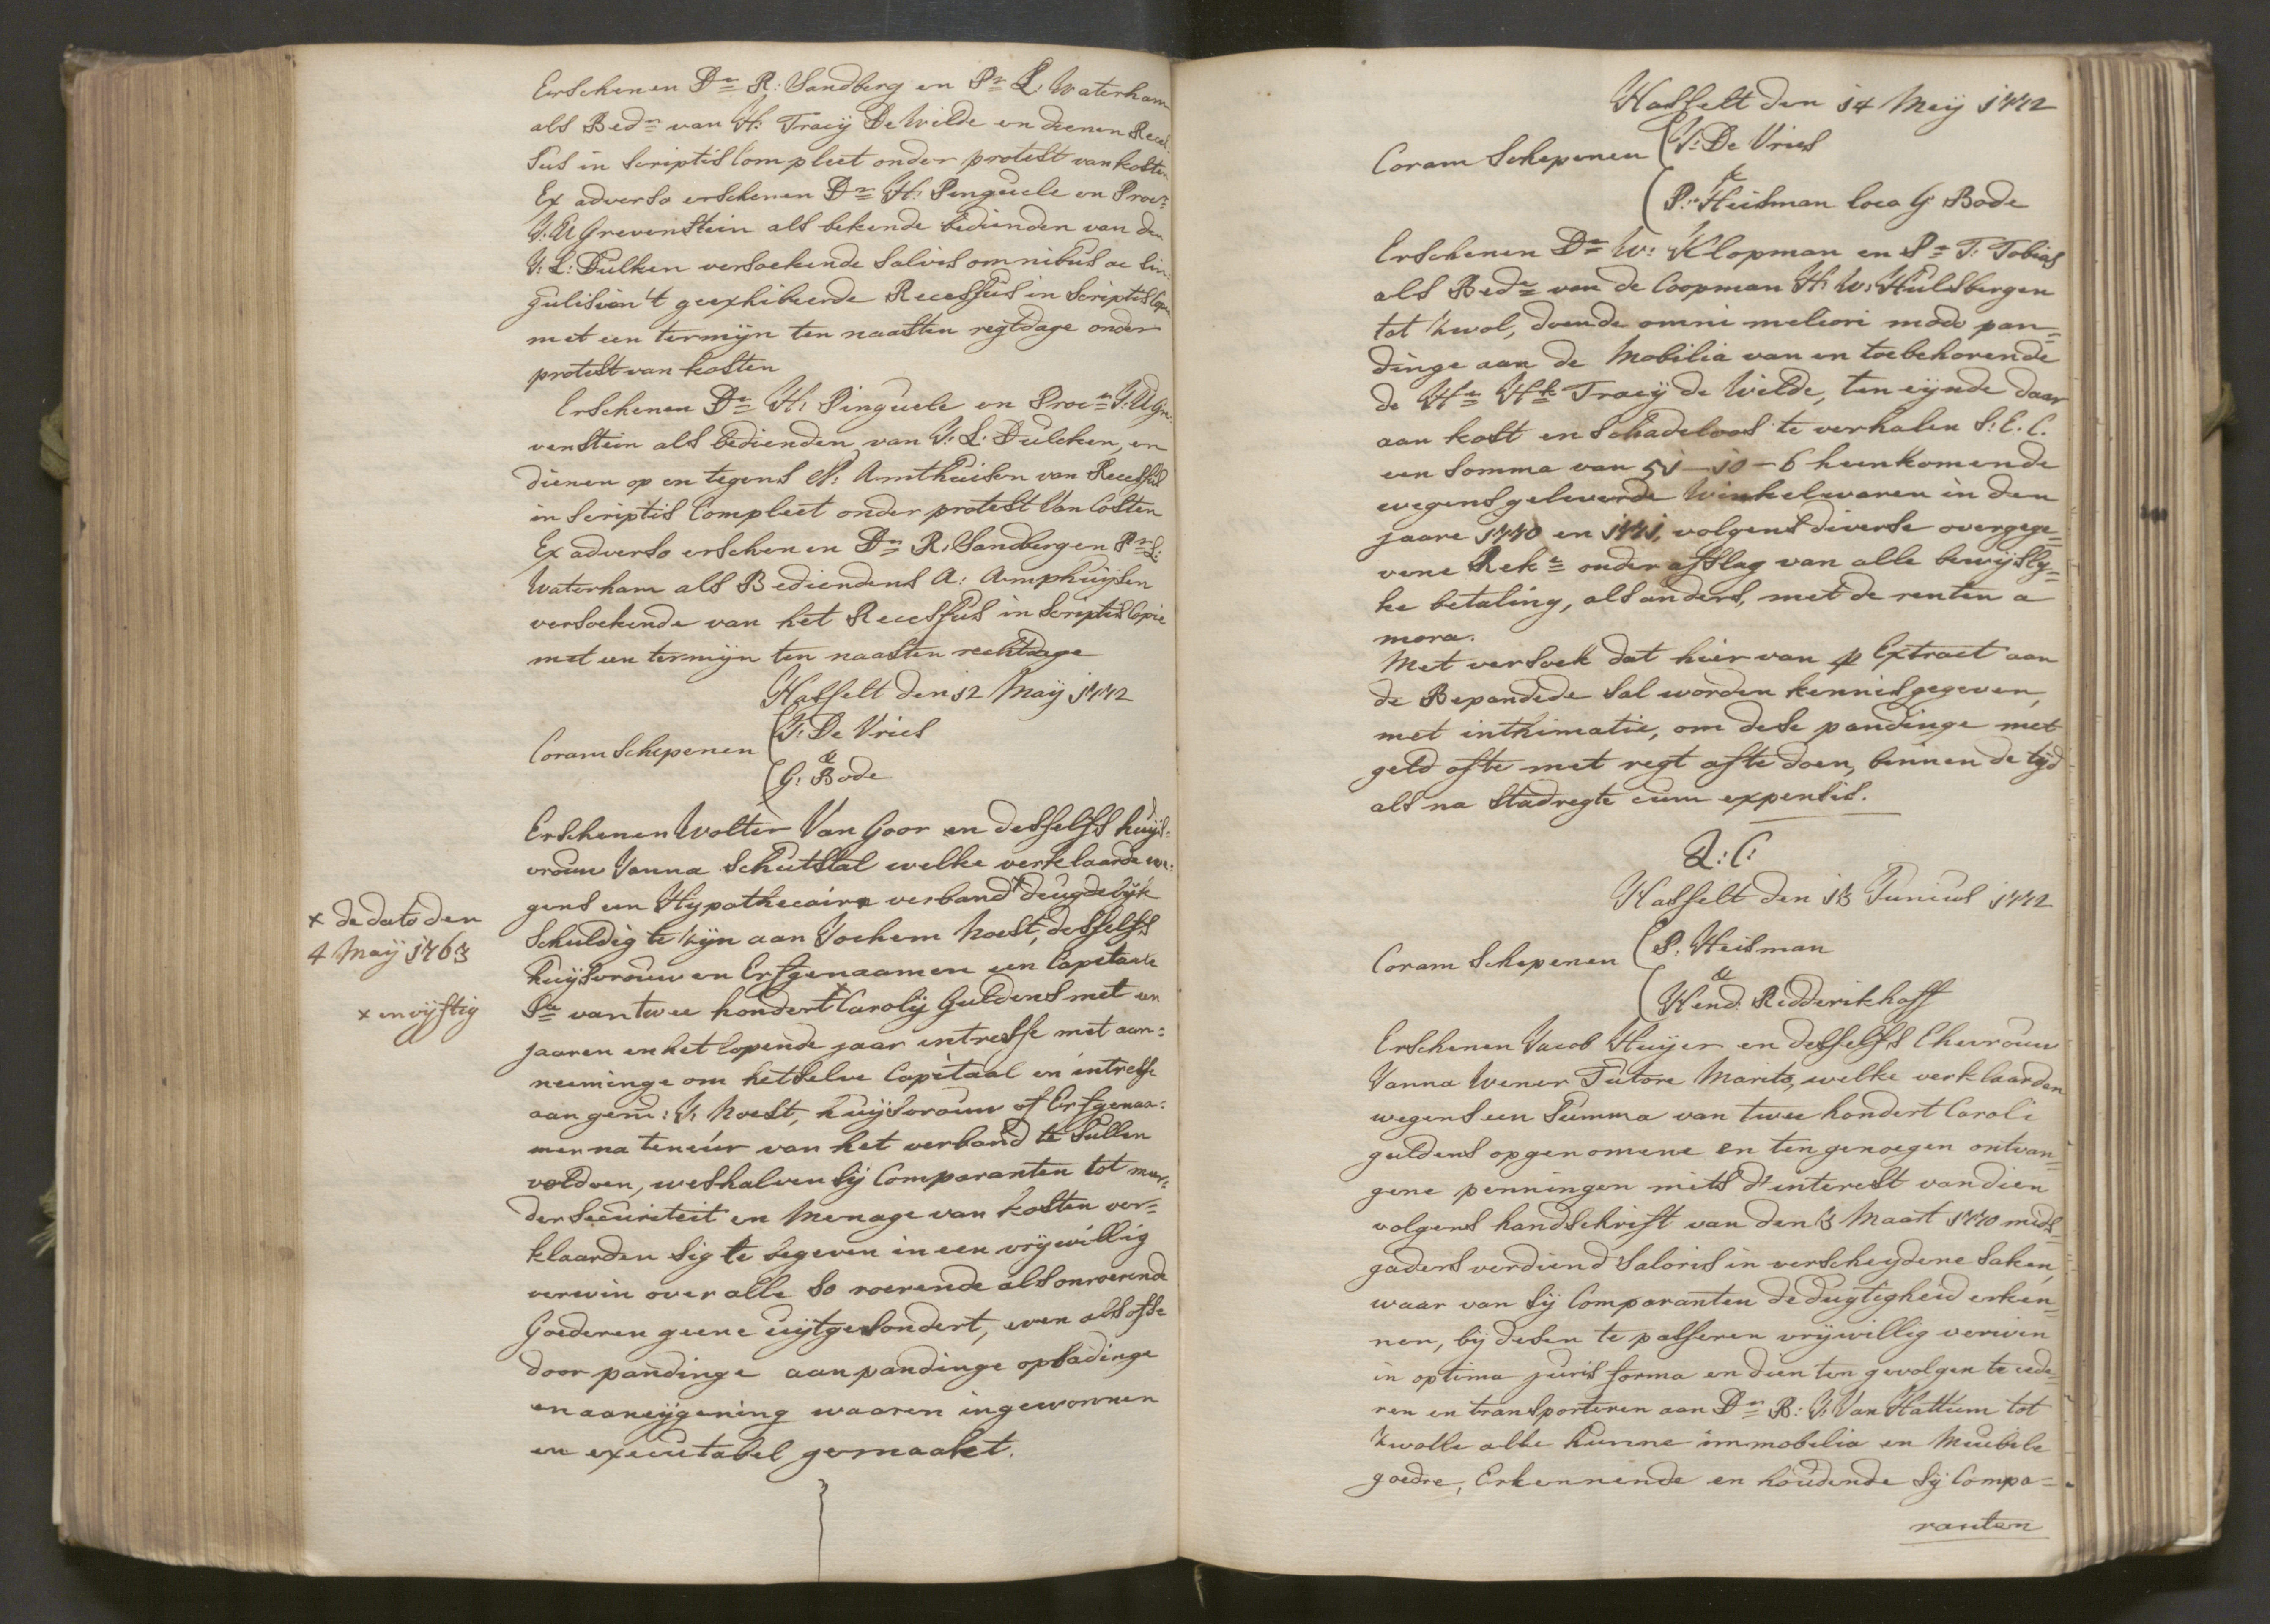 Erschenen Dr R: Sandberg en Pr L: Waterham
als Bedn van H: Tracij De Wilde en dienen Reces-
sus in scriptis Compleet onder protest van kosten
Ex adverso erschenen Dr H: Pinguele en Procr
J: A Grevenstein als bekende bedienden van den
J: L: Dulken versoekende salvis omnibus ac sin-
gulis van 't geexhibeerde Recessus in scriptis Copie
met een termijn ten naasten regtdage onder
protest van kosten
Erschenen Dr H: Pinguele en Procr J: A Gre-
venstein als bedienden van J: L: Dulcken, en
dienen op en tegens A: Amthuisen van Recessus
in scriptis Compleet onder protest van Costen
Ex adverso erschenen Dr R: Sandberg en Pr L:
Waterham als Bediendens A: Amphuijsen
versoekende van het Recessus in scriptis Copie
met een termijn ten naasten rechtdage
Hasselt den 12 Maij 1772
Coram Schepenen J: De Vries
&
G: Bode
Erschenen Wolter Van Goor en desselfs huijs-
vrouw Janna Schutstal welke verklaarde we-
gens een Hypothecaire verband + deugdelijk
x de dato den
4 Maij 1763
Schuldig te zijn aan Jochem Noest, desselfs
huijsvrouw en Erfgenaamen een Capitaale
Sa van twee hondert x Carolij Guldens met een
x en vijftig
jaaren en het lopende jaar intresse met aan-
neeminge om hetselve Capitaal en intresse
aan gem: J: Noest, huijsvrouw of Erfgenaa-
men na teneur van het verband te sullen
voldoen, weshalven sij Comparanten tot meer-
der securiteit en menage van kosten ver-
klaarden sig te begeven in een vrijwillig
verwin over alle so roerende als onroerende
Goederen geene uijtgesondert, even als ofse
door pandinge aanpandinge opbadinge
en aaneijgening waaren ingewonnen
en executabel gemaakt.
Hasselt den 14 Meij 1772
Coram Schepenen J: De Vries
&
P: Heisman loco G: Bode
Erschenen Dr W: Klopman en Pr T: Tobias
als Bedn van de Coopman H: W: Hulsbergen
tot Zwol, doende omni meliori modo pan-
dinge aan de Mobilia van en toebehorende
de Hr Hk Tracij de Wilde, ten eijnde daar
aan kost en schadeloos te verhalen S: C. C.
een somma van 51-10-6 heenkomende
wegens geleverde Winkelwaren in den
jaare 1770 en 1771, volgens diverse overgege-
vene Reke onder afslag van alle bewijsly-
ke betaling, als anders, met de renten a
mora.
Met versoek dat hier van p Extract aan
de Bepandede sal worden kennis gegeven,
met inthimatie, om dese pandinge met
geld ofte met regt afte doen, binnen de tijd
als na stadregte cum expensis.
L: C:
Hasselt den 13 Junius 1772
Coram Schepenen P: Heisman
&
Hend: Ridderikhoff
Erschenen Jacob Huijer en desselfs Ehevrouw
Janna Wener Tutore Marito, welke verklaarden
wegens een Summa van twee hondert Caroli
guldens opgenomene en ten genoegen ontvan-
gene penningen mits d' interest van dien
volgens handschrift van den 3 Maart 1770 mids-
gaders verdiend Saloris in verscheydene saken,
waar van sij Comparanten de dugtigheid erken-
nen, bij desen te passeren vrijwillig verwin
in optima juris forma en dien ten gevolgen te cede-
ren en transporteren aan Dr B: J: Van Hattum tot
Zwolle alle hunne immobilia en Meubele
goedre, Erkennende en houdende sij Compa-
ranten